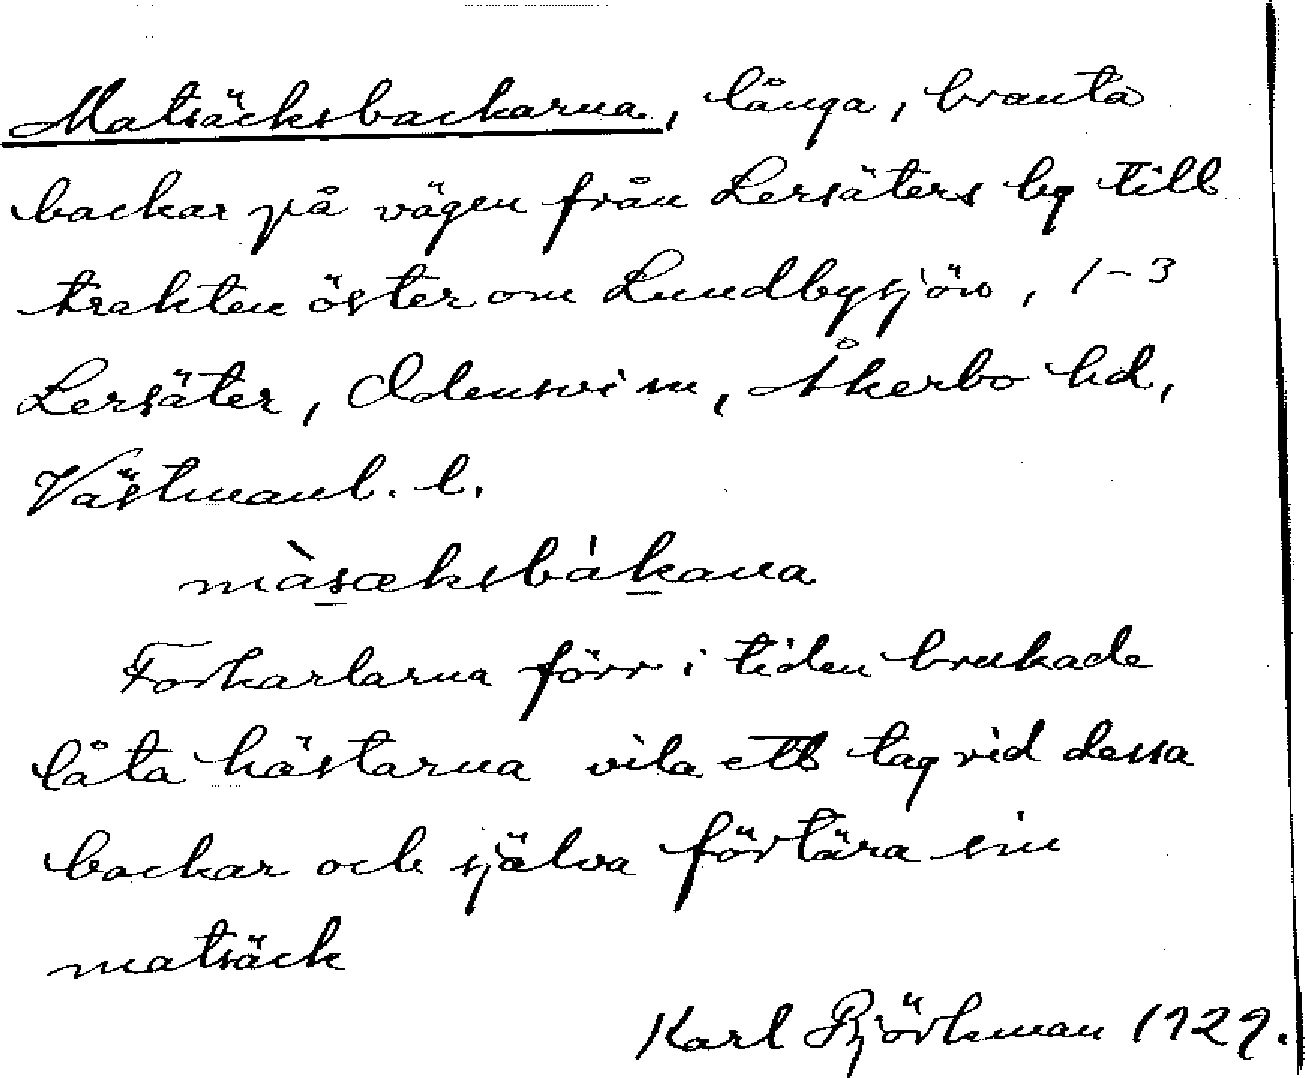 Matsäcksbackarna, långa, branta
backar på vägen från Lersäters by till
trakten öster om Lundbysjön, 1-3
Lersäter, Odensvi sn, Åkerbo hd,
Västmanl. l.
màsæksbákana
Forkarlarna förr i tiden brukade
låta hästarna vila ett tag vid dessa
backar och själva förtära sin
matsäck
Karl Björkman 1929.